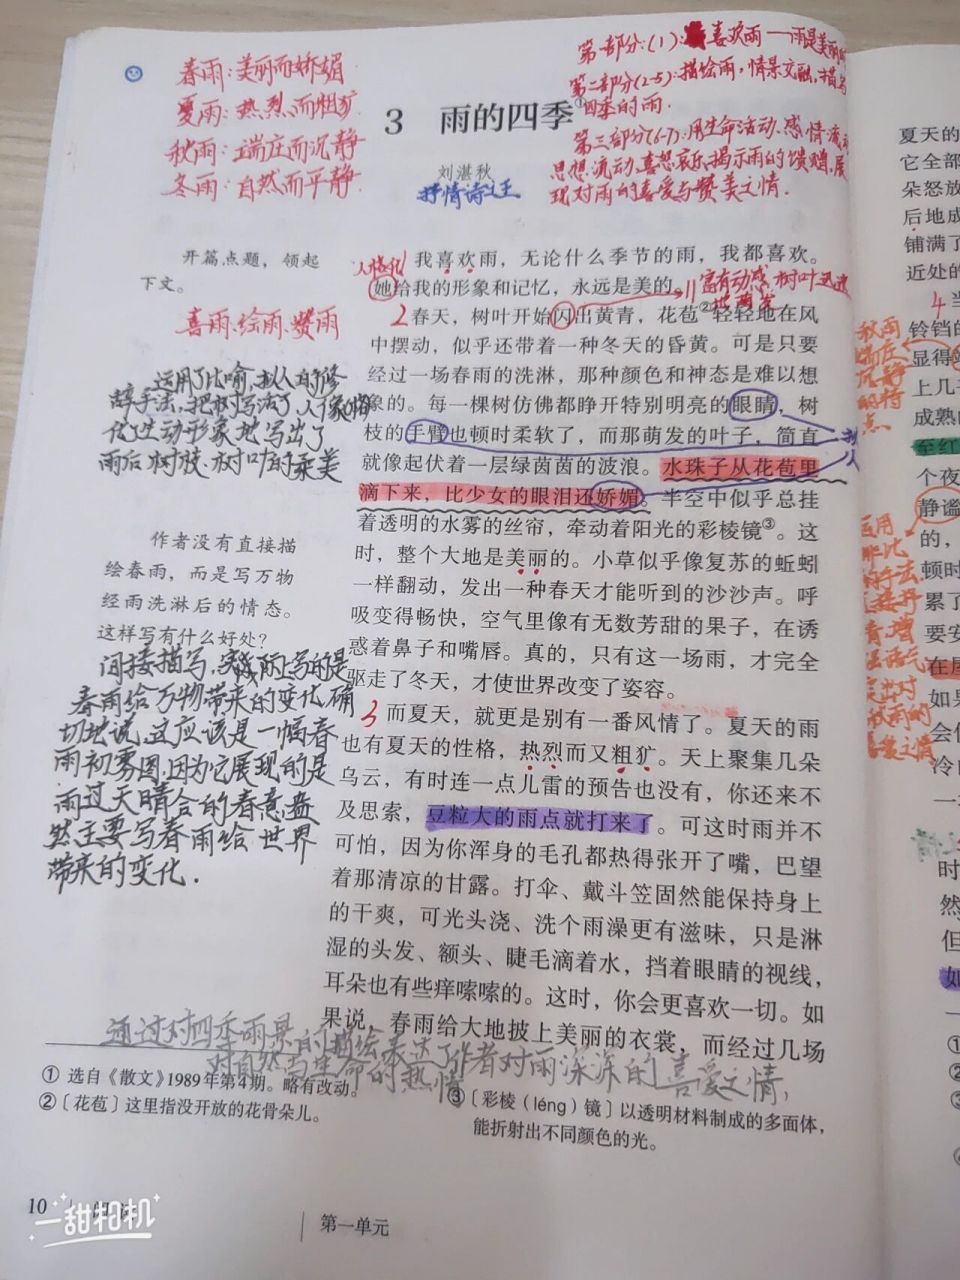 春雨：美丽而娇媚
夏雨：热烈而粗犷
秋雨：端庄而沉静
冬雨：自然而平静
第一部分：(1)：喜欢雨——雨是美丽的
第二部分(2-5)：描绘雨，情景交融，描写
四季的雨.
第三部分(6-7)：用生命活动、感情流动
思想流动、喜怒哀乐揭示雨的馈赠，展
现对雨的喜爱与赞美之情.
3 雨的四季①
刘湛秋
抒情诗之王
开篇点题，领起
下文。
喜雨、绘雨、赞雨
运用了比喻、拟人的修
辞手法，把树写活了，人格
化了生动形象地写出了
雨后树枝、树叶的柔美
作者没有直接描
绘春雨，而是写万物
经雨洗淋后的情态。
这样写有什么好处？
间接描写，实际上写的是
春雨给万物带来的变化，确
切地说，这应该是一幅春
雨初雾图，因为它展现的是
雨过天晴合的春意盎
然主要写春雨给世界
带来的变化.
人格化
我喜欢雨，无论什么季节的雨，我都喜欢。
她给我的形象和记忆，永远是美的。
富有动感 树叶迅速
2 春天，树叶开始闪出黄青，花苞②轻轻地在风
中摆动，似乎还带着一种冬天的昏黄。可是只要
经过一场春雨的洗淋，那种颜色和神态是难以想
象的。每一棵树仿佛都睁开特别明亮的眼睛，树
枝的手臂也顿时柔软了，而那萌发的叶子，简直
就像起伏着一层绿茵茵的波浪。水珠子从花苞里
滴下来，比少女的眼泪还娇媚。半空中似乎总挂
着透明的水雾的丝帘，牵动着阳光的彩棱镜③。这
时，整个大地是美丽的。小草似乎像复苏的蚯蚓
一样翻动，发出一种春天才能听到的沙沙声。呼
吸变得畅快，空气里像有无数芳甜的果子，在诱
惑着鼻子和嘴唇。真的，只有这一场雨，才完全
驱走了冬天，才使世界改变了姿容。
拟人
3 而夏天，就更是别有一番风情了。夏天的雨
也有夏天的性格，热烈而又粗犷。天上聚集几朵
乌云，有时连一点儿雷的预告也没有，你还来不
及思索，豆粒大的雨点就打来了。可这时雨并不
可怕，因为你浑身的毛孔都热得张开了嘴，巴望
着那清凉的甘露。打伞、戴斗笠固然能保持身上
的干爽，可光头浇、洗个雨澡更有滋味，只是淋
湿的头发、额头、睫毛滴着水，挡着眼睛的视线，
耳朵也有些痒嗦嗦的。这时，你会更喜欢一切。如
果说，春雨给大地披上美丽的衣裳，而经过几场
通过对四季雨景的描绘表达了作者对雨深深的喜爱之情，
对自然与生命的热情
① 选自《散文》1989年第4期。略有改动。
②〔花苞〕这里指没开放的花骨朵儿。
③〔彩棱（léng）镜〕以透明材料制成的多面体，
能折射出不同颜色的光。
10
第一单元
一甜相机
夏天的
它全部
朵怒放
后地成
铺满了
近处的
4 当
铃铛的
显得
上几
成熟的
至红
个夜
静谧
的，
顿时
累了
要安
在屋
如果
会使
冷的
秋雨
端庄
沉静
的特
点